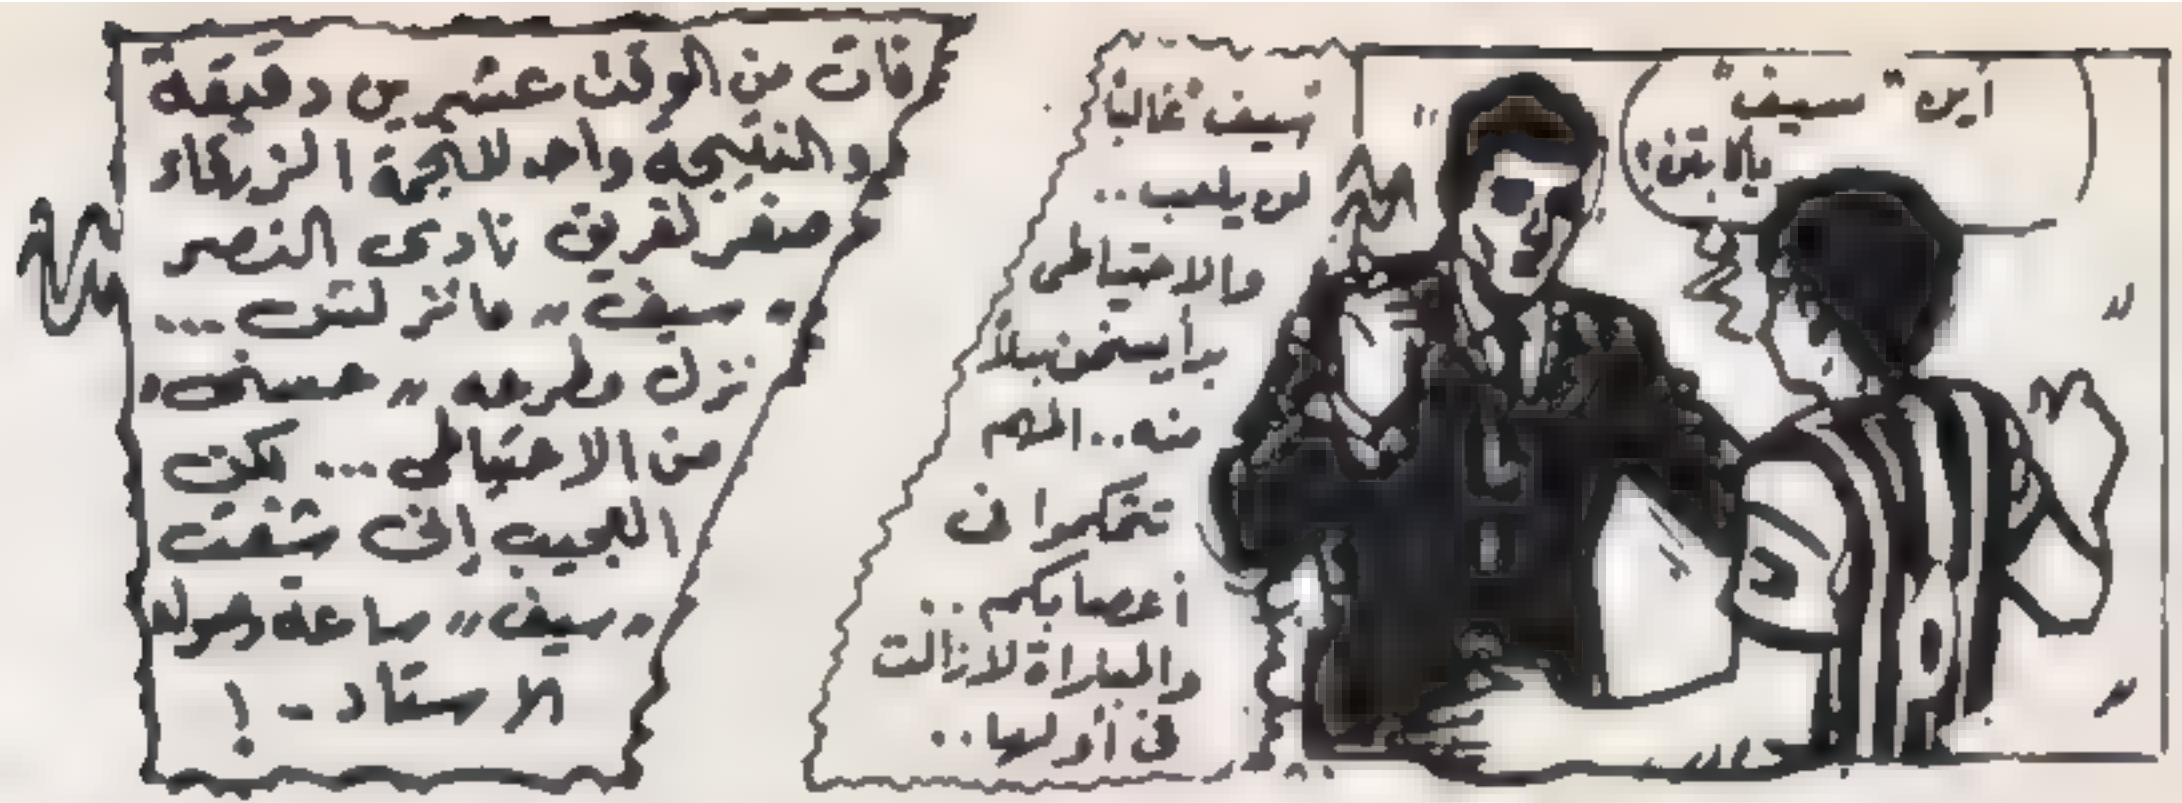 أين "سيف"
ياكابتن؟
"سيف" غالباً
لن يلعب..
والاحتياطى
بدأ يسخن بدلاً
منه.. المهم
تتحكموا فى
أعصابكم..
والمباراة لازالت
فى أولها..
فات من الوقت عشرين دقيقة
والنتيجه واحد للنجمة الزرقاء
صفر لفريق نادى النصر
"سيف" مانزلش...
نزل مطرحه "حسنى"
من الاحتياطى... لكن
العجيب إنى شفت
"سيف" ساعة دخوله
الاستاد - !